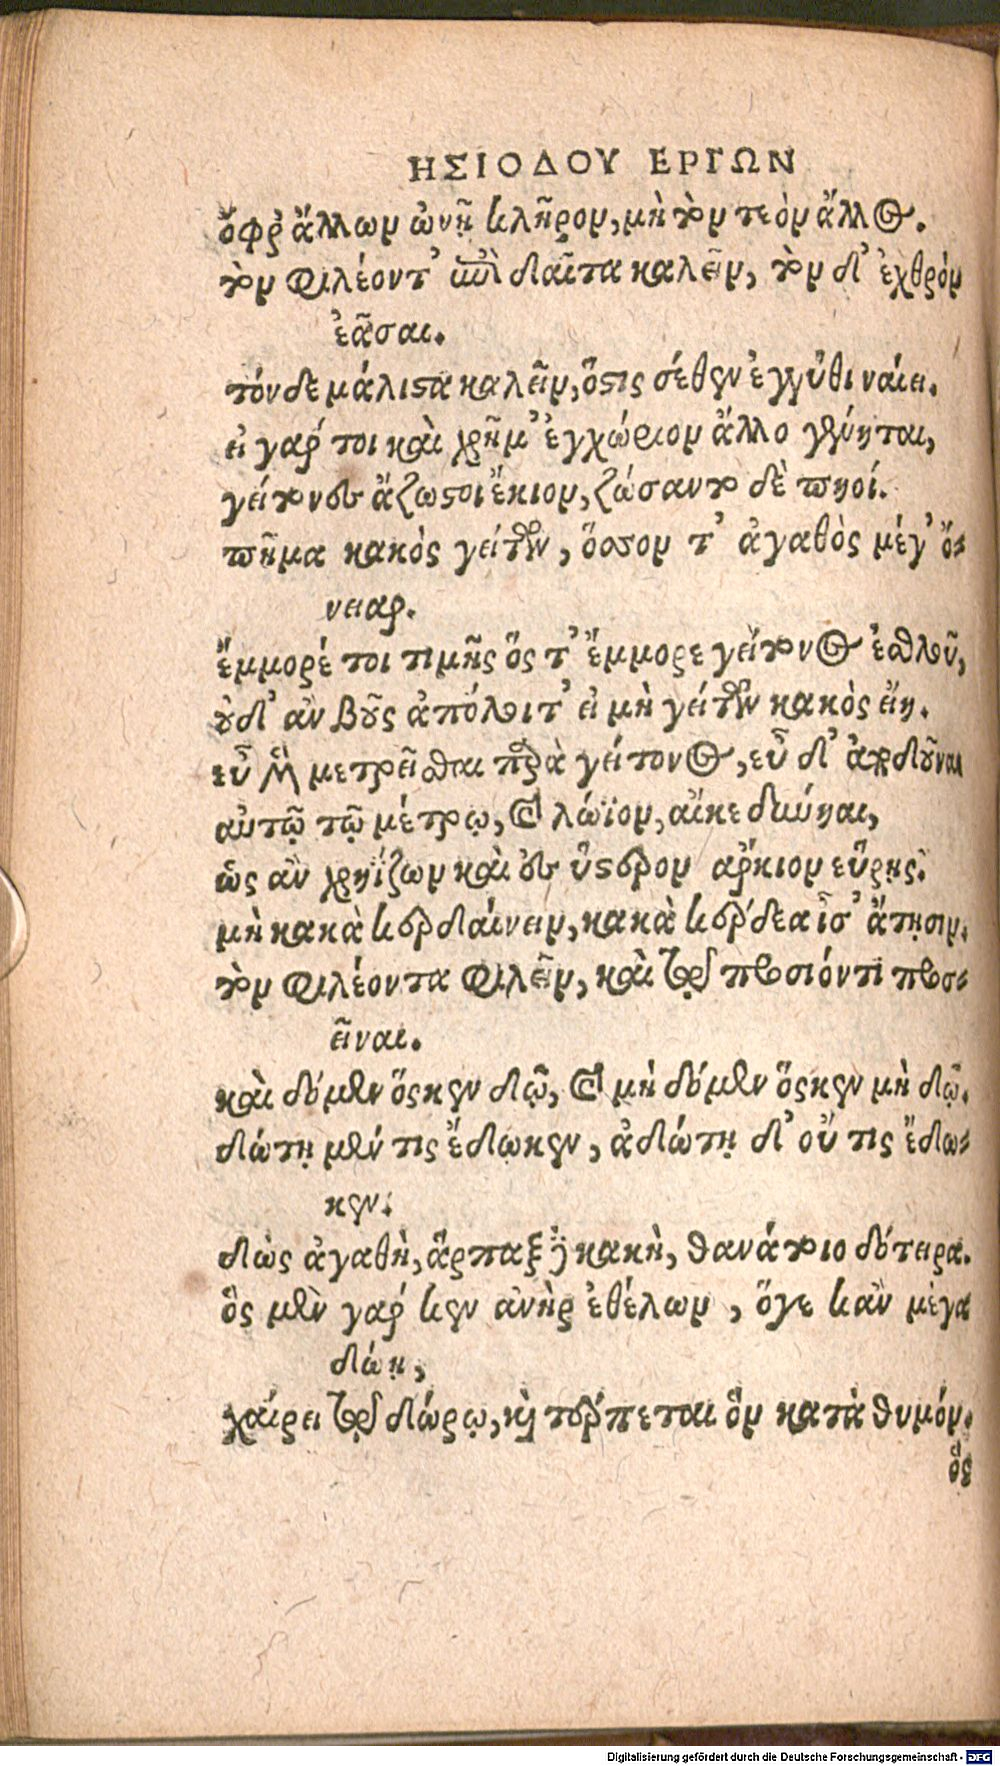 ΗΣΙΟΔΟΥ ΕΡΓΩΝ
ὄφρ' ἄλλων ὠνῇ κλῆρον, μὴ τὸν τεὸν ἄλλος.
τὸν φιλέοντ' ἐπὶ δαῖτα καλεῖν, τὸν δ' ἐχθρὸν
ἐᾶσαι.
τόνδε μάλιστα καλεῖν, ὅστις σέθεν ἐγγύθι ναίει.
εἰ γάρ τοι καὶ χρῆμ' ἐγχώριον ἄλλο γένηται,
γείτονες ἄζωστοι ἔκιον, ζώσαντο δὲ πηοί.
πῆμα κακὸς γείτων, ὅσσον τ' ἀγαθὸς μέγ' ὄ-
νειαρ.
ἔμμορέ τοι τιμῆς ὅς τ' ἔμμορε γείτονος ἐσθλοῦ,
οὐδ' ἂν βοῦς ἀπόλοιτ' εἰ μὴ γείτων κακὸς εἴη.
εὖ μὲν μετρεῖσθαι παρὰ γείτονος, εὖ δ' ἀποδοῦναι
αὐτῷ τῷ μέτρῳ, καὶ λώϊον, αἴκε δύνηαι,
ὡς ἂν χρηΐζων καὶ ἐς ὕστερον ἄρκιον εὕρῃς.
μὴ κακὰ κερδαίνειν, κακὰ κέρδεα ἶσ' ἄτῃσιν.
τὸν φιλέοντα φιλεῖν, καὶ τῷ προσιόντι προσ-
εῖναι.
καὶ δόμεν ὅς κεν δῷ, καὶ μὴ δόμεν ὅς κεν μὴ δῷ.
δώτῃ μέν τις ἔδωκεν, ἀδώτῃ δ' οὔ τις ἔδω-
κεν.
δὼς ἀγαθὴ, ἅρπαξ δὲ κακὴ, θανάτοιο δότειρα.
ὃς μὲν γάρ κεν ἀνὴρ ἐθέλων, ὅγε κἂν μέγα
δώῃ,
χαίρει τῷ δώρῳ, καὶ τέρπεται ὃν κατὰ θυμόν.
ὃς
Digitalisierung gefördert durch die Deutsche Forschungsgemeinschaft - DFG